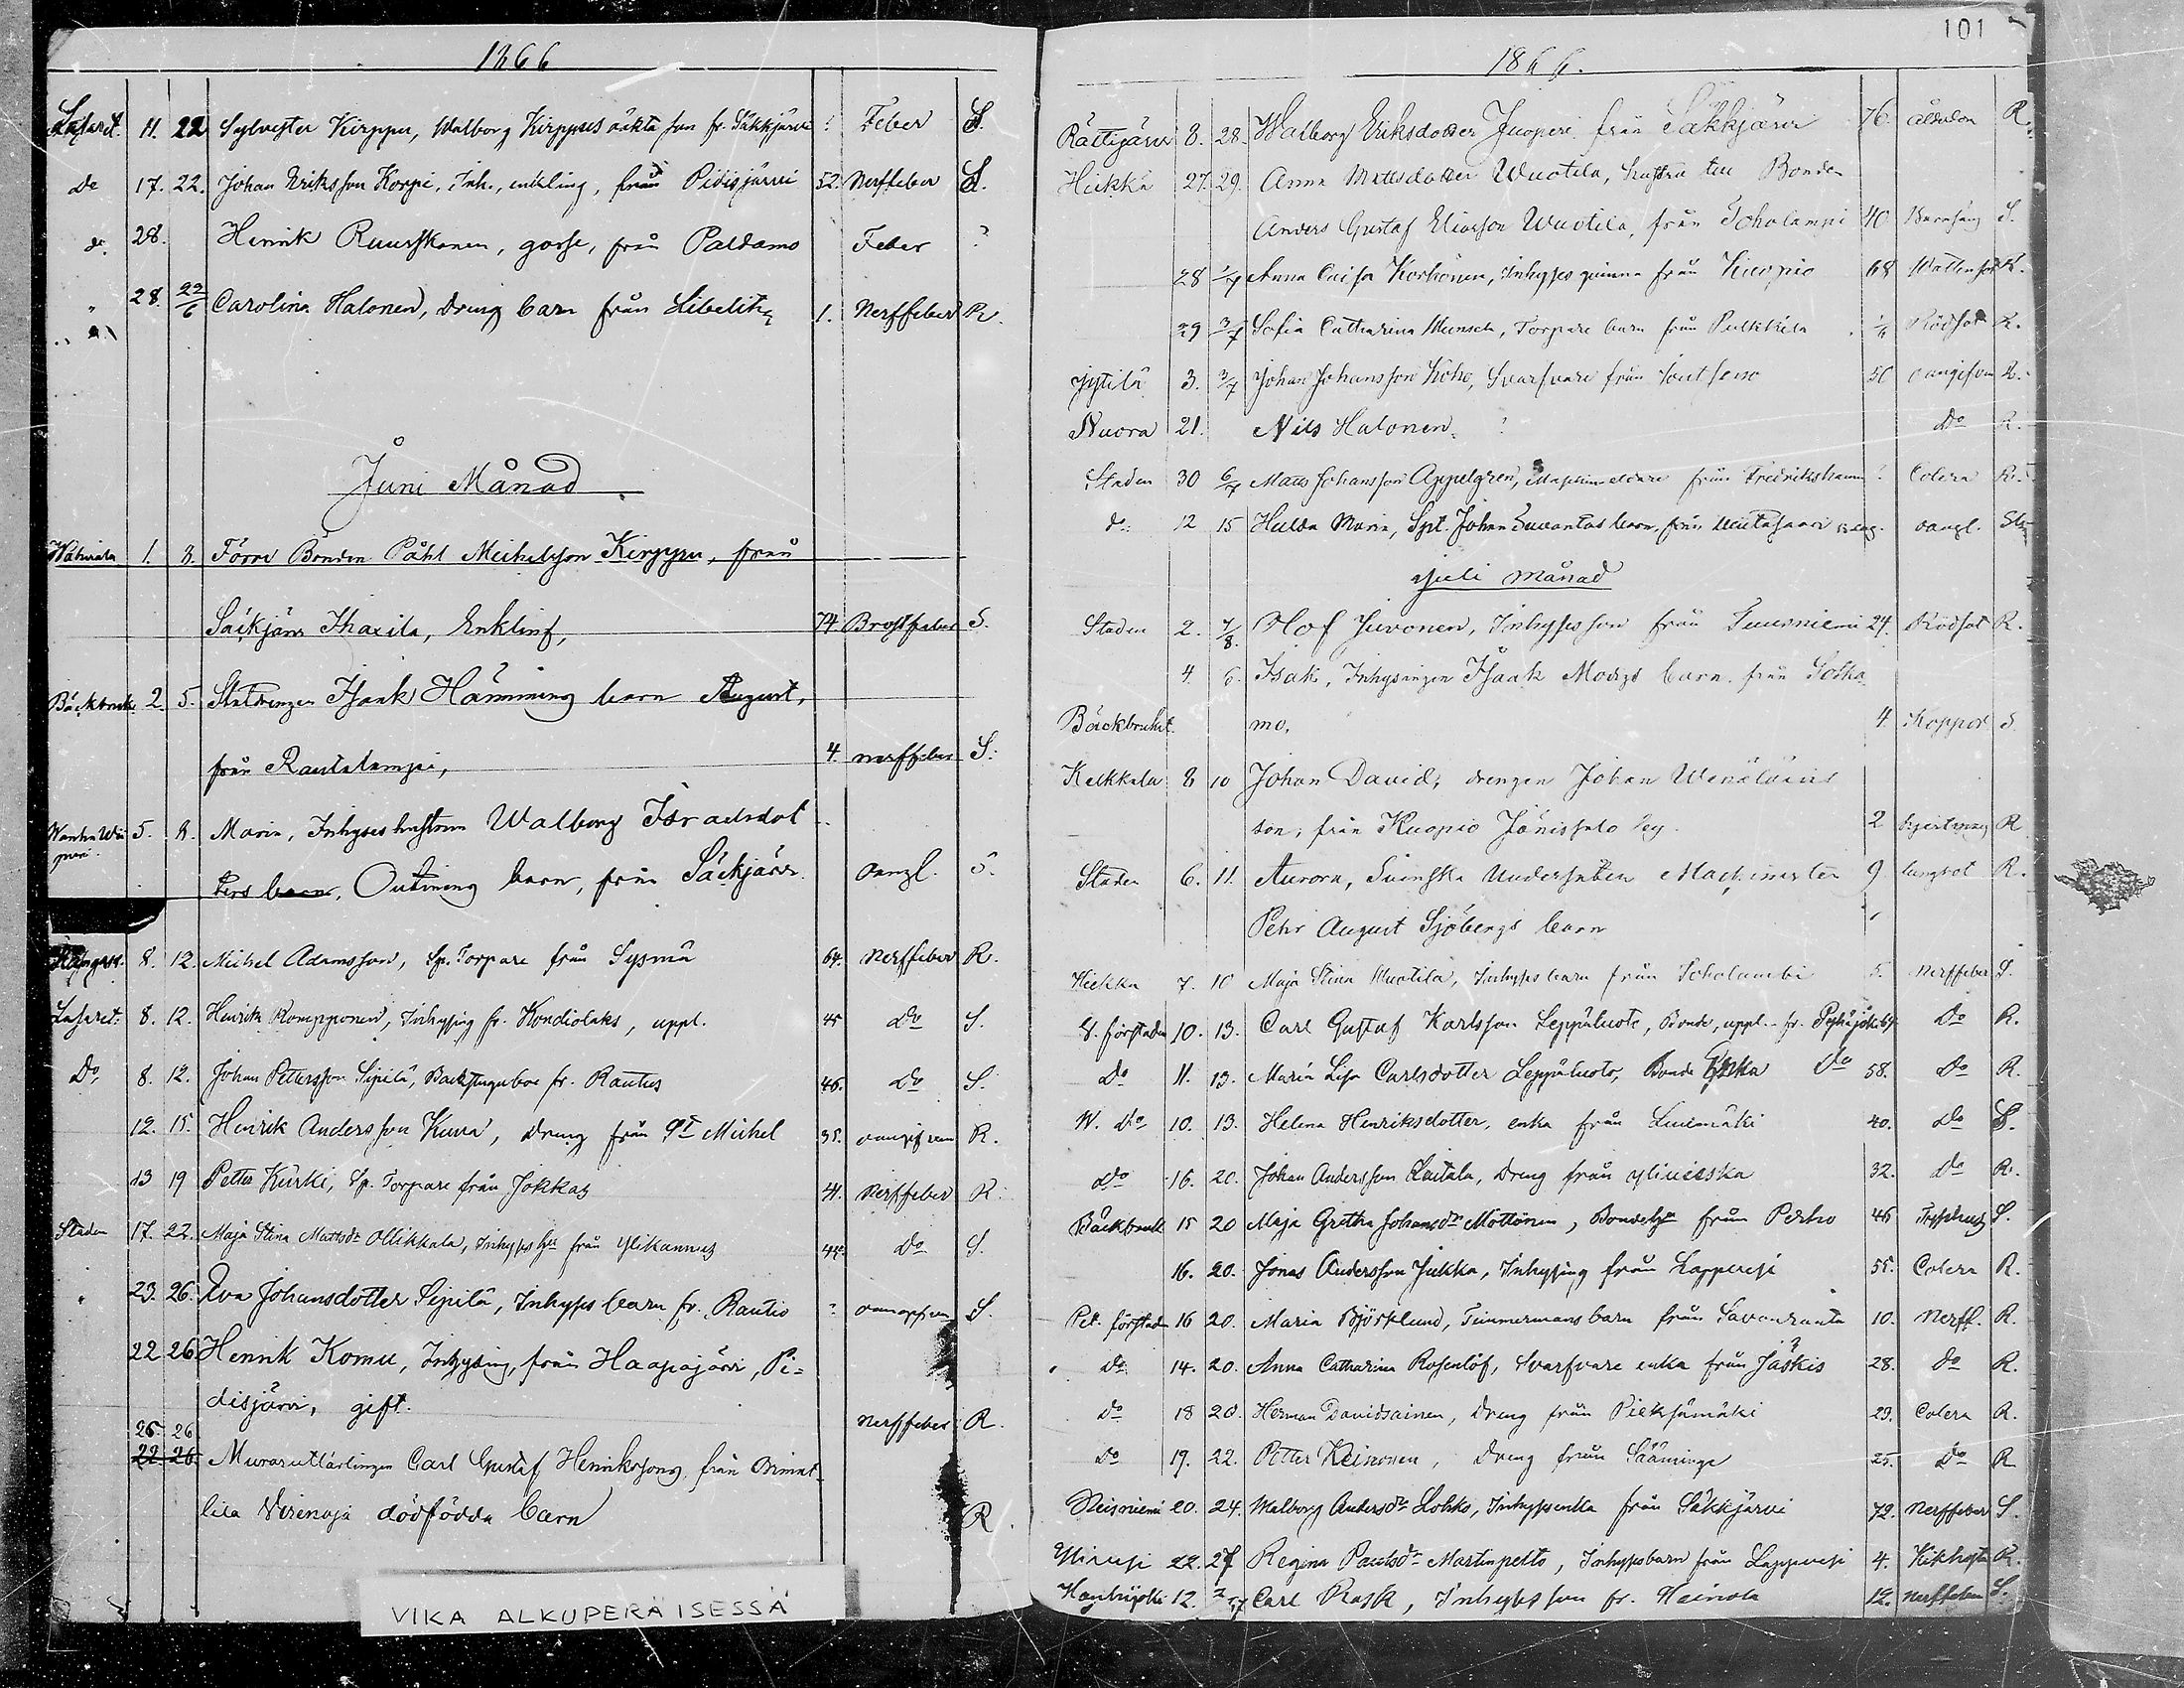 1866
Lasaret. 11. 22 Sylvester Kirppu, Walborg Kirppus oäkta son fr. Säkkjärvi ? Feber S.
do 17. 22. Johan Eriksson Korpi, Inh., enkling, från Pidisjärvi 52. Nerffeber S.
do. 28. Henrik Ruuskanen, gosse, från Paldamo Feber ?
" 28. 22/6 Carolina Halonen, dreng barn från Libelitz 1. Nerffeber R.
Juni Månad
1. 3. Förre Bonden Påhl Michelsson Kirppu, från
Säckjärvi Ihaxila, Enkling, 74 Bröstfeber S.
Bäckbruk. 2. 5. Statdrengen Isaak Hämming barn August,
från Rautalampi, 4. nerffeber S.
5. 8. Maria, Inhyses hustrun Walborg Israelsdot
ters barn, barn, från Säckjärvi oangl. S.
8. 12. Michel Adamsson, Sp. Torpare från Sysmä 64. Nerffeber R.
Lasaret. 8. 12. Henrik Rompponen, Inhysing fr. Kondiolaks, uppl. 45 do S.
Do. 8. 12. Johan Pettersson Sipilä, Backstuguboe fr. Rautus 46. do S.
12. 15. Henrik Andersson Kuva, Dreng från St Michel 35. oangifven R.
13 19 Petter Kurki, Sp. Torpare från Jokkas 41. Nerffeber R.
Staden 17. 22. Maja Stina Mattsdr Ollikkala, Inhyses hu från Ylikannus 44. do S.
" 23. 26. Eva Johansdotter Sipilä, Inhyses barn fr. Rautio ? S.
22 26 Henrik Komu, Inhysing, från Haapajärvi, Pi=
disjärvi, gift. Nerffeber R.
25. 26
22 26. Murarelärlingen Carl Gustaf Henrikssons från
lila dödfödda barn R.
VIKA ALKUPERÄISESSÄ
101
1866.
Rättijärvi 8. 28. Walborg Eriksdotter Juoperi från Säkkjärvi 76. ålderdom R.
Hiekka 27. 29. Anna Mattsdotter Wuotila, hustru till Bonden
Anders Gustaf Eliasson Wuotila, från Toholampi 40 Barnsäng S.
28 1/7 Anna Caisa Korhonen, Inhyses quinna från Kuopio 68 Wattensot R.
29 3/7 Sofia Catharina Torpare barn från Pulkkila Rödsot R.
Jytilä 3. 3/7 Johan Johansson Koho, Svarfvare från Joutseno 50 oangifven R.
Nuora 21. Nils Halonen. ? do R.
Staden 30 6/7 Matts Johansson Appelgren, Maskineldare från Fredrikshamn ? Colera R.
do. 12 15 Hulda Maria, Spt. Johan Suvantos barn, från oangl.
Juli månad
Staden 2. 7/8. Olof Juvonen, Inhyses son från Tuusniemi 24. Rödsot R.
4. 6. Isak, Inhysingen Isaak Modigs barn från Sotka
Bäckbruket. mo. 4. Koppor S
Kelkkala 8 10 Johan David, drengen Johan Wenäläins
son, från Kuopio Jänissalo by. 2 R
Staden 6. 11. Aurora, Svenska Undersåten Machinisten 9 lungsot R.
Petr August Sjöbergs barn
Hiekka 7. 10 Maja Stina Wuotila, Inhyses barn från Toholambi 5. Nerffeber S.
S. förstaden 10. 13. Carl Gustaf Karlsson Leppäluoto, Bonde, uppl. fr. do R.
Do 11. 13. Maria Lisa Carlsdotter Leppäluoto, Bonde Enka do 58. do R.
W. do 10. 13. Helena Henriksdotter, enka från Luumäki 40. do S.
do 16. 20. Johan Andersson Laitala, Dreng från Ylivieska 32. do R.
Bäckbruk 15 20 Maja Gretha Johansdr Möttönen, Bondehu från Perho 46 Typhus S.
16. 20. Jonas Andersson Jukka, Inhysing från Lappvesi 55. Colera R.
Pet. förstad 16 20. Maria Björklund, Timmermans barn från Savonranta 10. Nerff. R.
do 14. 20. Anna Catharina Rosenlöf, Svarfvare enka från Jäskis ? 28. do R.
do 18 20. Herman Davidsainen, dreng från Pieksämäki 23. Colera R.
do 19. 22. Petter Keinonen, Dreng från Sääminge 25. do R
Neisniemi 20. 24. Walborg Andersdr Lohko, Inhyses enka från Säkkjärvi 72. Nerffeber S.
Ylivesi 22. 27 Regina Paulsdr Martinpelto, Inhysesbarn från Lappvesi 4. Kikhosta R.
12. 2/7 Carl Rask, Inhyses son fr. Heinola 12. Nerffeber S.